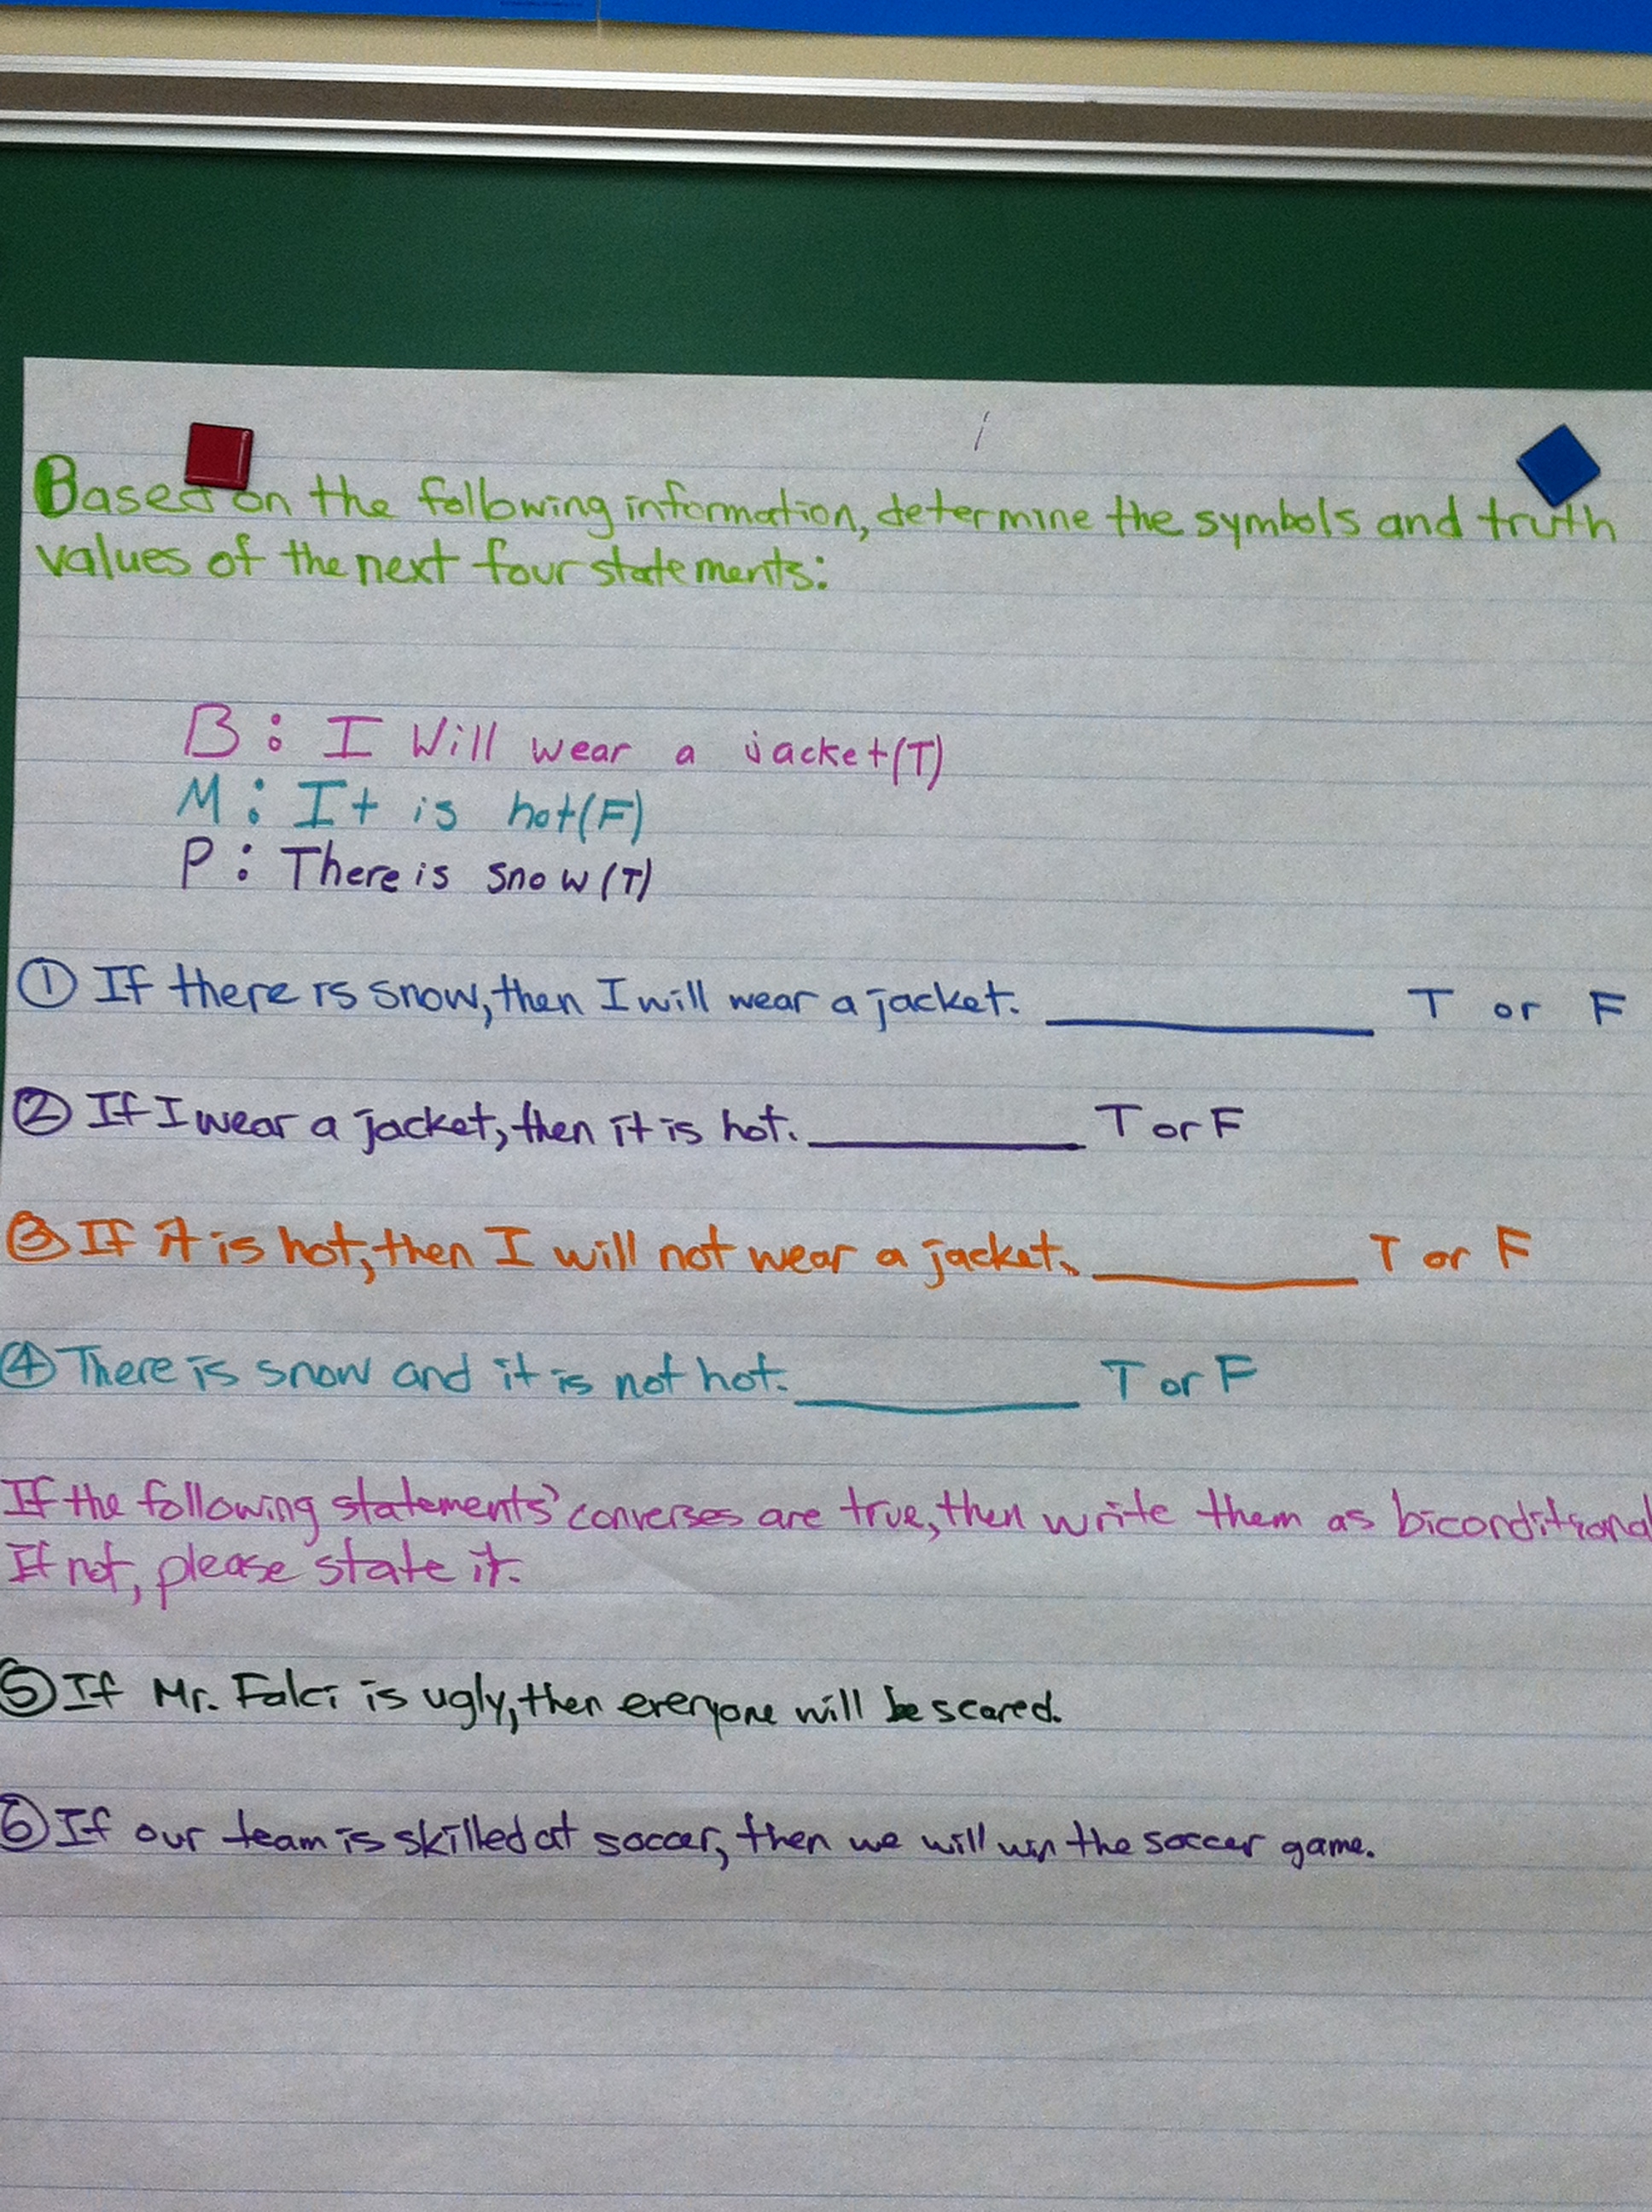 Based on the following information, determine the symbols and truth
values of the next four statements:
B: I Will wear a jacket(T)
M: It is hot(F)
P: There is snow(T)
① If there is snow, then I will wear a jacket. __________ T or F
② If I wear a jacket, then it is hot. __________ T or F
③ If it is hot, then I will not wear a jacket. __________ T or F
④ There is snow and it is not hot. __________ T or F
If the following statements' converses are true, then write them as biconditional
If not, please state it.
⑤ If Mr. Falci is ugly, then everyone will be scared.
⑥ If our team is skilled at soccer, then we will win the soccer game.